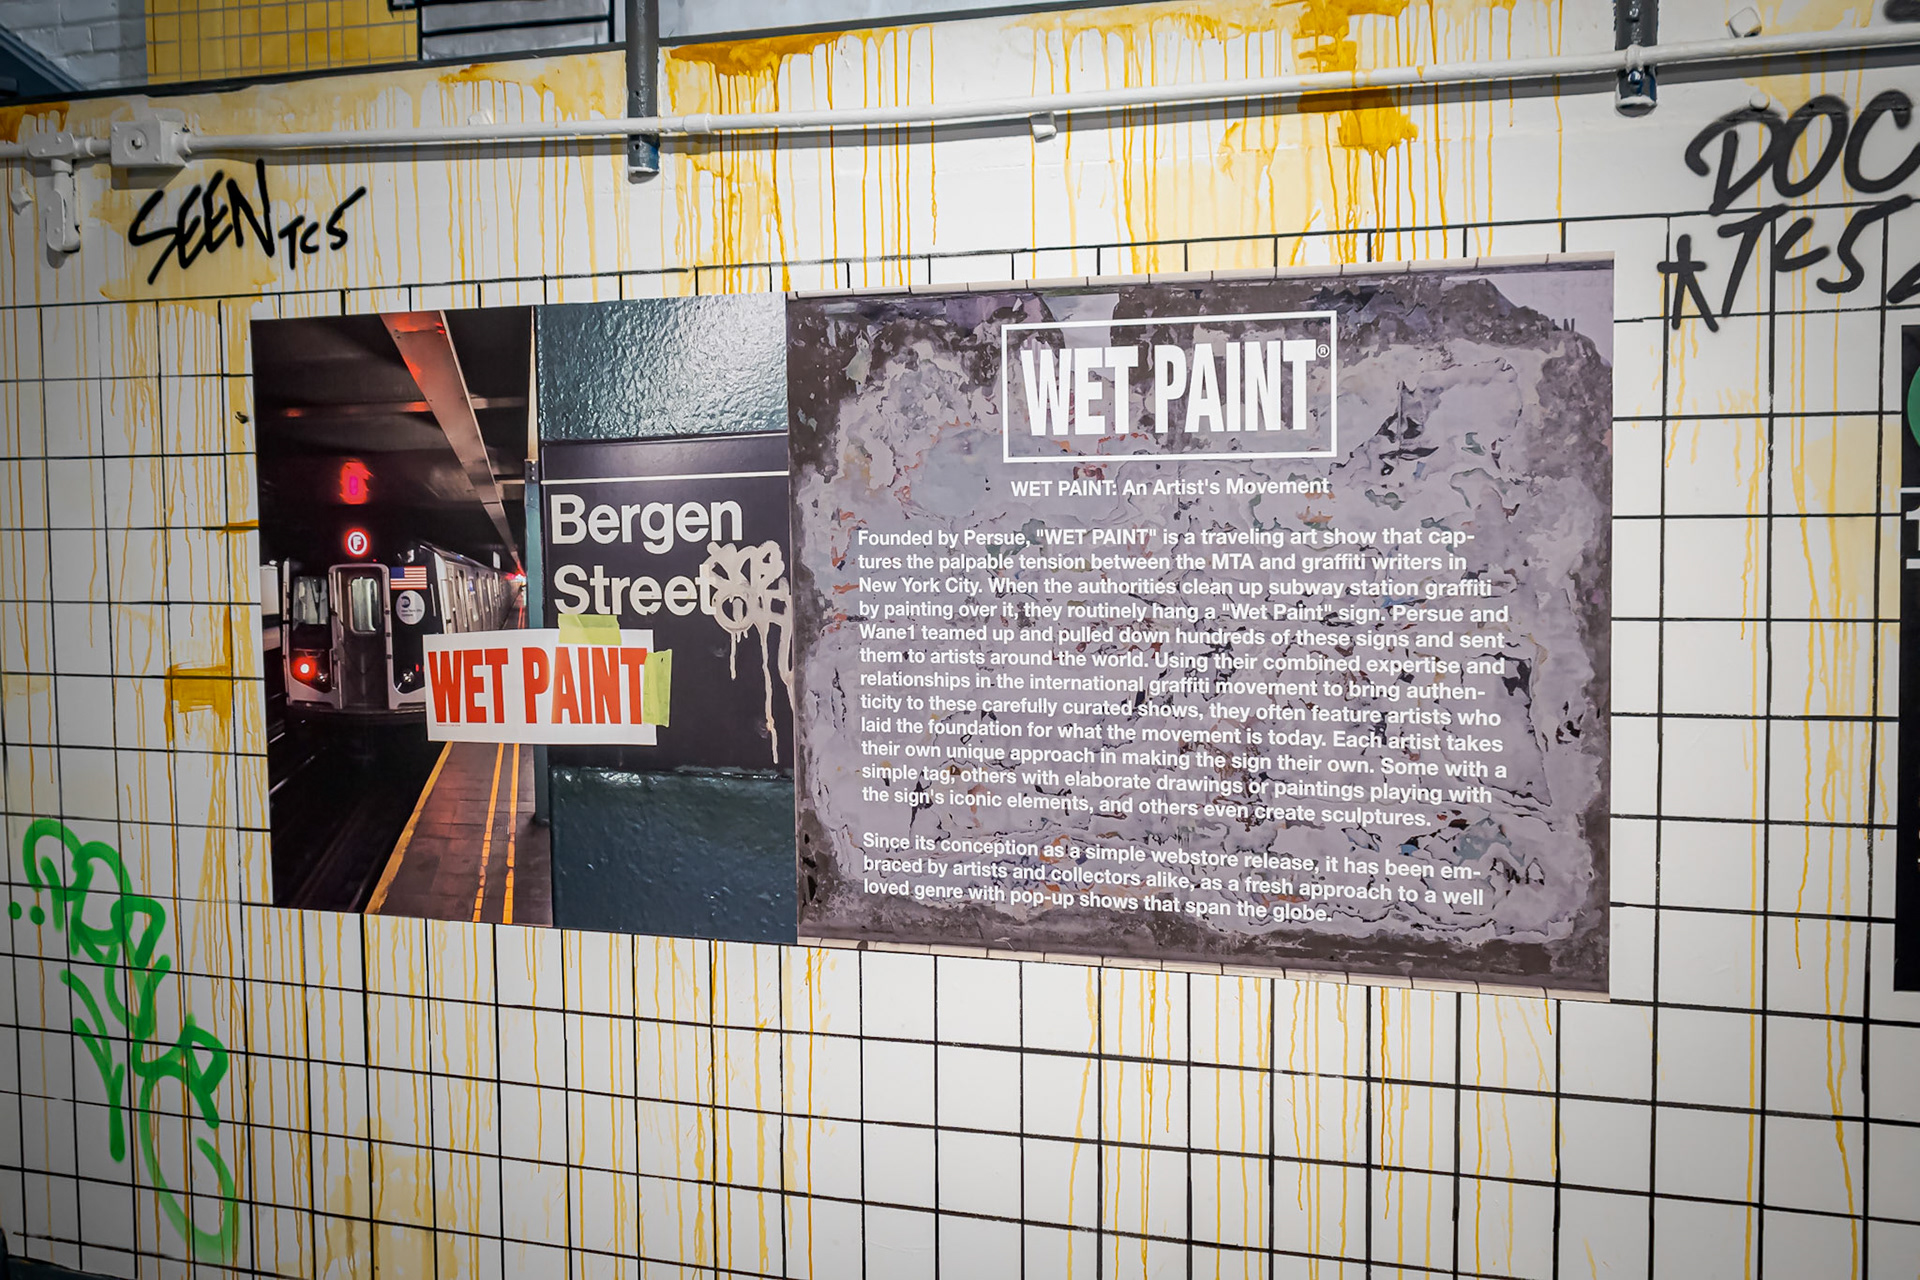 SEEN TCS
DOC
TC5
F
Bergen
Street
WET PAINT
WET PAINT®
WET PAINT: An Artist's Movement
Founded by Persue, "WET PAINT" is a traveling art show that cap-
tures the palpable tension between the MTA and graffiti writers in
New York City. When the authorities clean up subway station graffiti
by painting over it, they routinely hang a "Wet Paint" sign. Persue and
Wane1 teamed up and pulled down hundreds of these signs and sent
them to artists around the world. Using their combined expertise and
relationships in the international graffiti movement to bring authen-
ticity to these carefully curated shows, they often feature artists who
laid the foundation for what the movement is today. Each artist takes
their own unique approach in making the sign their own. Some with a
simple tag, others with elaborate drawings or paintings playing with
the sign's iconic elements, and others even create sculptures.
Since its conception as a simple webstore release, it has been em-
braced by artists and collectors alike, as a fresh approach to a well
loved genre with pop-up shows that span the globe.